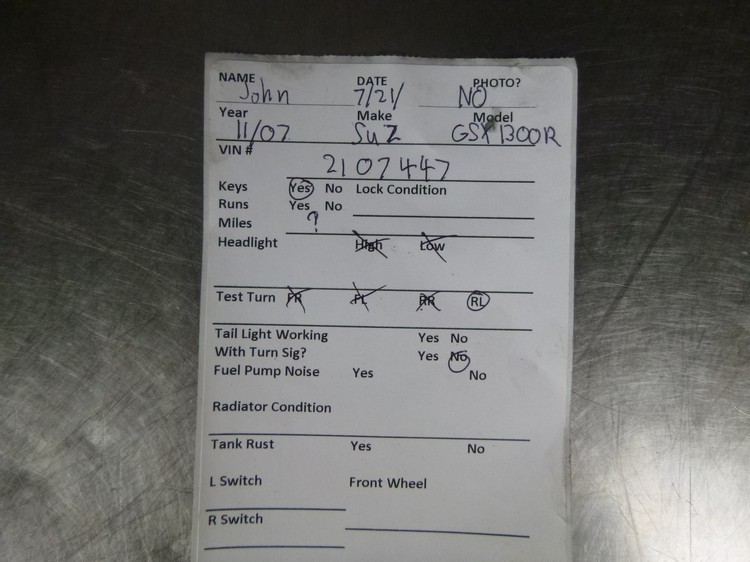 NAME DATE PHOTO?
John 7/21/ NO
Year Make Model
11/07 SUZ GSX1300R
VIN #
2107447
Keys Yes No Lock Condition
Runs Yes No
Miles ?
Headlight High Low
Test Turn FR FL RR RL
Tail Light Working Yes No
With Turn Sig? Yes No
Fuel Pump Noise Yes No
Radiator Condition
Tank Rust Yes No
L Switch Front Wheel
R Switch